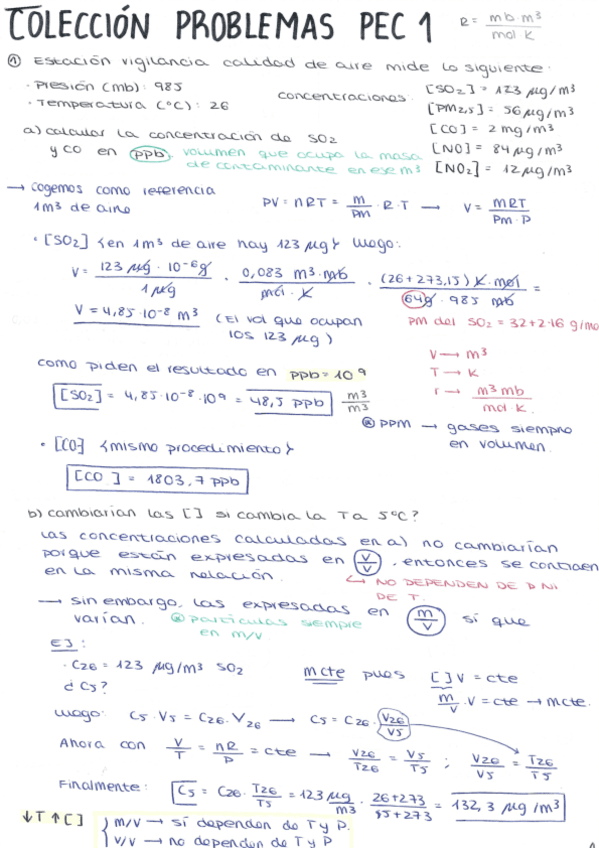 COLECCIÓN PROBLEMAS PEC 1
R = mb·m³ / mol K
① Estación vigilancia calidad de aire mide lo siguiente:
· Presión (mb): 985
· Temperatura (°C): 26
concentraciones:
[SO2] = 123 µg/m³
[PM2,5] = 56 µg/m³
[CO] = 2 mg/m³
[NO] = 84 µg/m³
[NO2] = 12 µg/m³
a) calcular la concentración de SO2
y CO en ppb, volumen que ocupa la masa
de contaminante en ese m³
→ cogemos como referencia
1m³ de aire
PV = nRT = m/Pm · R · T → V = mRT / Pm · P
· [SO2] {en 1m³ de aire hay 123 µg} luego:
V = 123 µg · 10⁻⁶ g / 1 µg · 0,083 m³·mb / mol · K · (26+273,15) K · mol / 64g · 985 mb =
V = 4,85·10⁻⁸ m³ (El vol que ocupan
los 123 µg)
PM del SO2 = 32+2·16 g/mol
V → m³
T → K
r → m³ mb / mol · K.
como piden el resultado en ppb = 10⁹
[SO2] = 4,85·10⁻⁸·10⁹ = 48,5 ppb m³/m³
⊛ PPM → gases siempre
en volumen.
· [CO] {mismo procedimiento}
[CO] = 1803,7 ppb
b) cambiarían las [ ] si cambia la T a 5°C?
Las concentraciones calculadas en a) no cambiarían
porque están expresadas en V/V, entonces se contraen
en la misma relación.
↳ NO DEPENDEN DE P NI
DE T.
→ sin embargo, las expresadas en m/V sí que
varían.
⊛ partículas siempre
en m/v
EJ:
· C26 = 123 µg/m³ SO2
¿ C5?
mcte pues [ ] V = cte
m/V · V = cte → mcte.
Luego: C5 · V5 = C26 · V26 → C5 = C26 · V26/V5
Ahora con V/T = nR/P = cte → V26/T26 = V5/T5 ; V26/V5 = T26/T5
Finalmente: C5 = C26 · T26/T5 = 123 µg/m³ · 26+273 / 5+273 = 132,3 µg/m³
↓T ↑[ ] { m/V → sí dependen de T y P.
V/V → no dependen de T y P